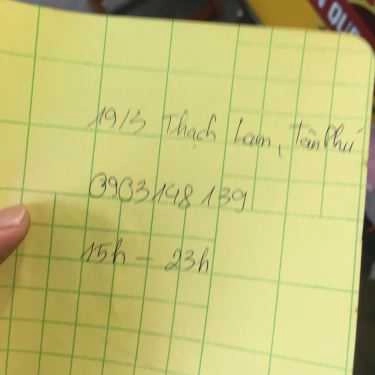 19/3 Thạch Lam, Tân Phú
0903148139
15h - 23h